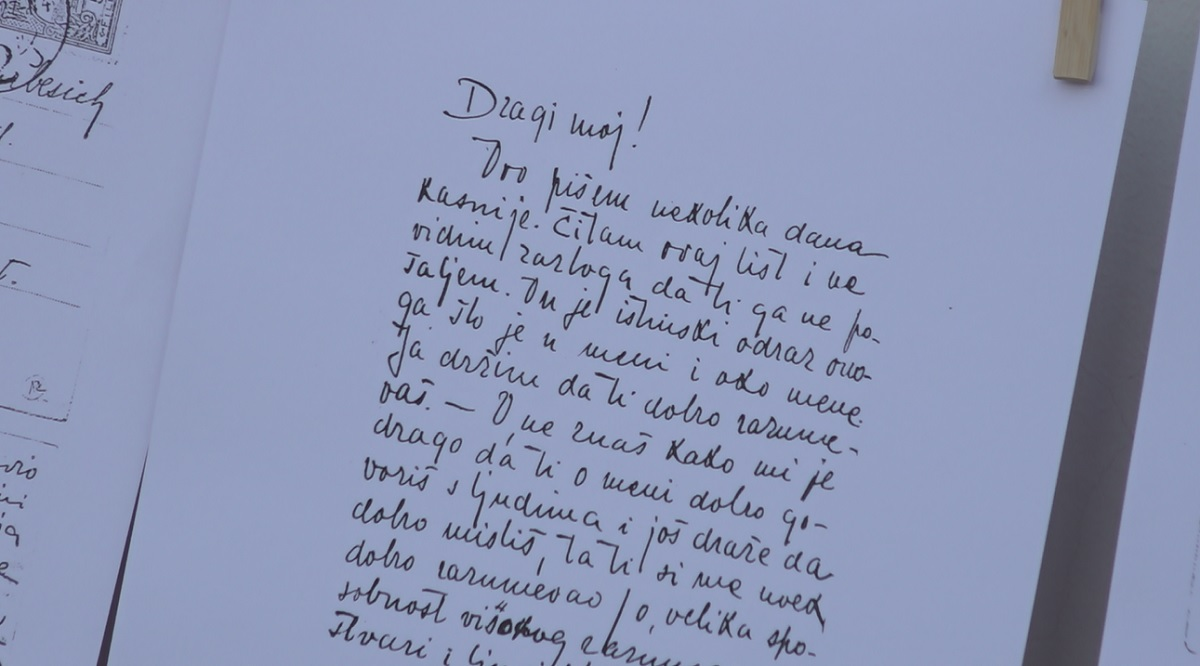 Dragi moj!
Ovo pišem nekolika dana
kasnije. Čitam ovaj list i ne
vidim razloga da ti ga ne po-
šaljem. On je istinski odraz ono-
ga što je u meni i oko mene.
Ja držim da ti dobro razume-
vaš. — O, ne znaš kako mi je
drago da ti o meni dobro go-
voriš s ljudima i još draže da
dobro misliš, ta ti si me uvek
dobro razumevao / o, velika spo-
sobnost
stvari i